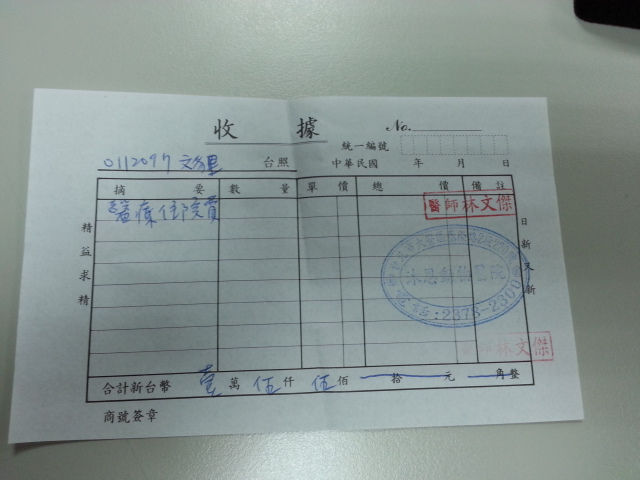 收 據
No.
統一編號
0112097 文多里 台照
中華民國 年 月 日
摘 要 數 量 單 價 總 價 備 註
醫療住院費
醫師林文傑
精益求精
日新又新
沐恩動物醫院
電話:2378-2300
林文傑
合計新台幣 壹 萬 伍 仟 伍 佰 拾 元 角 整
商號簽章